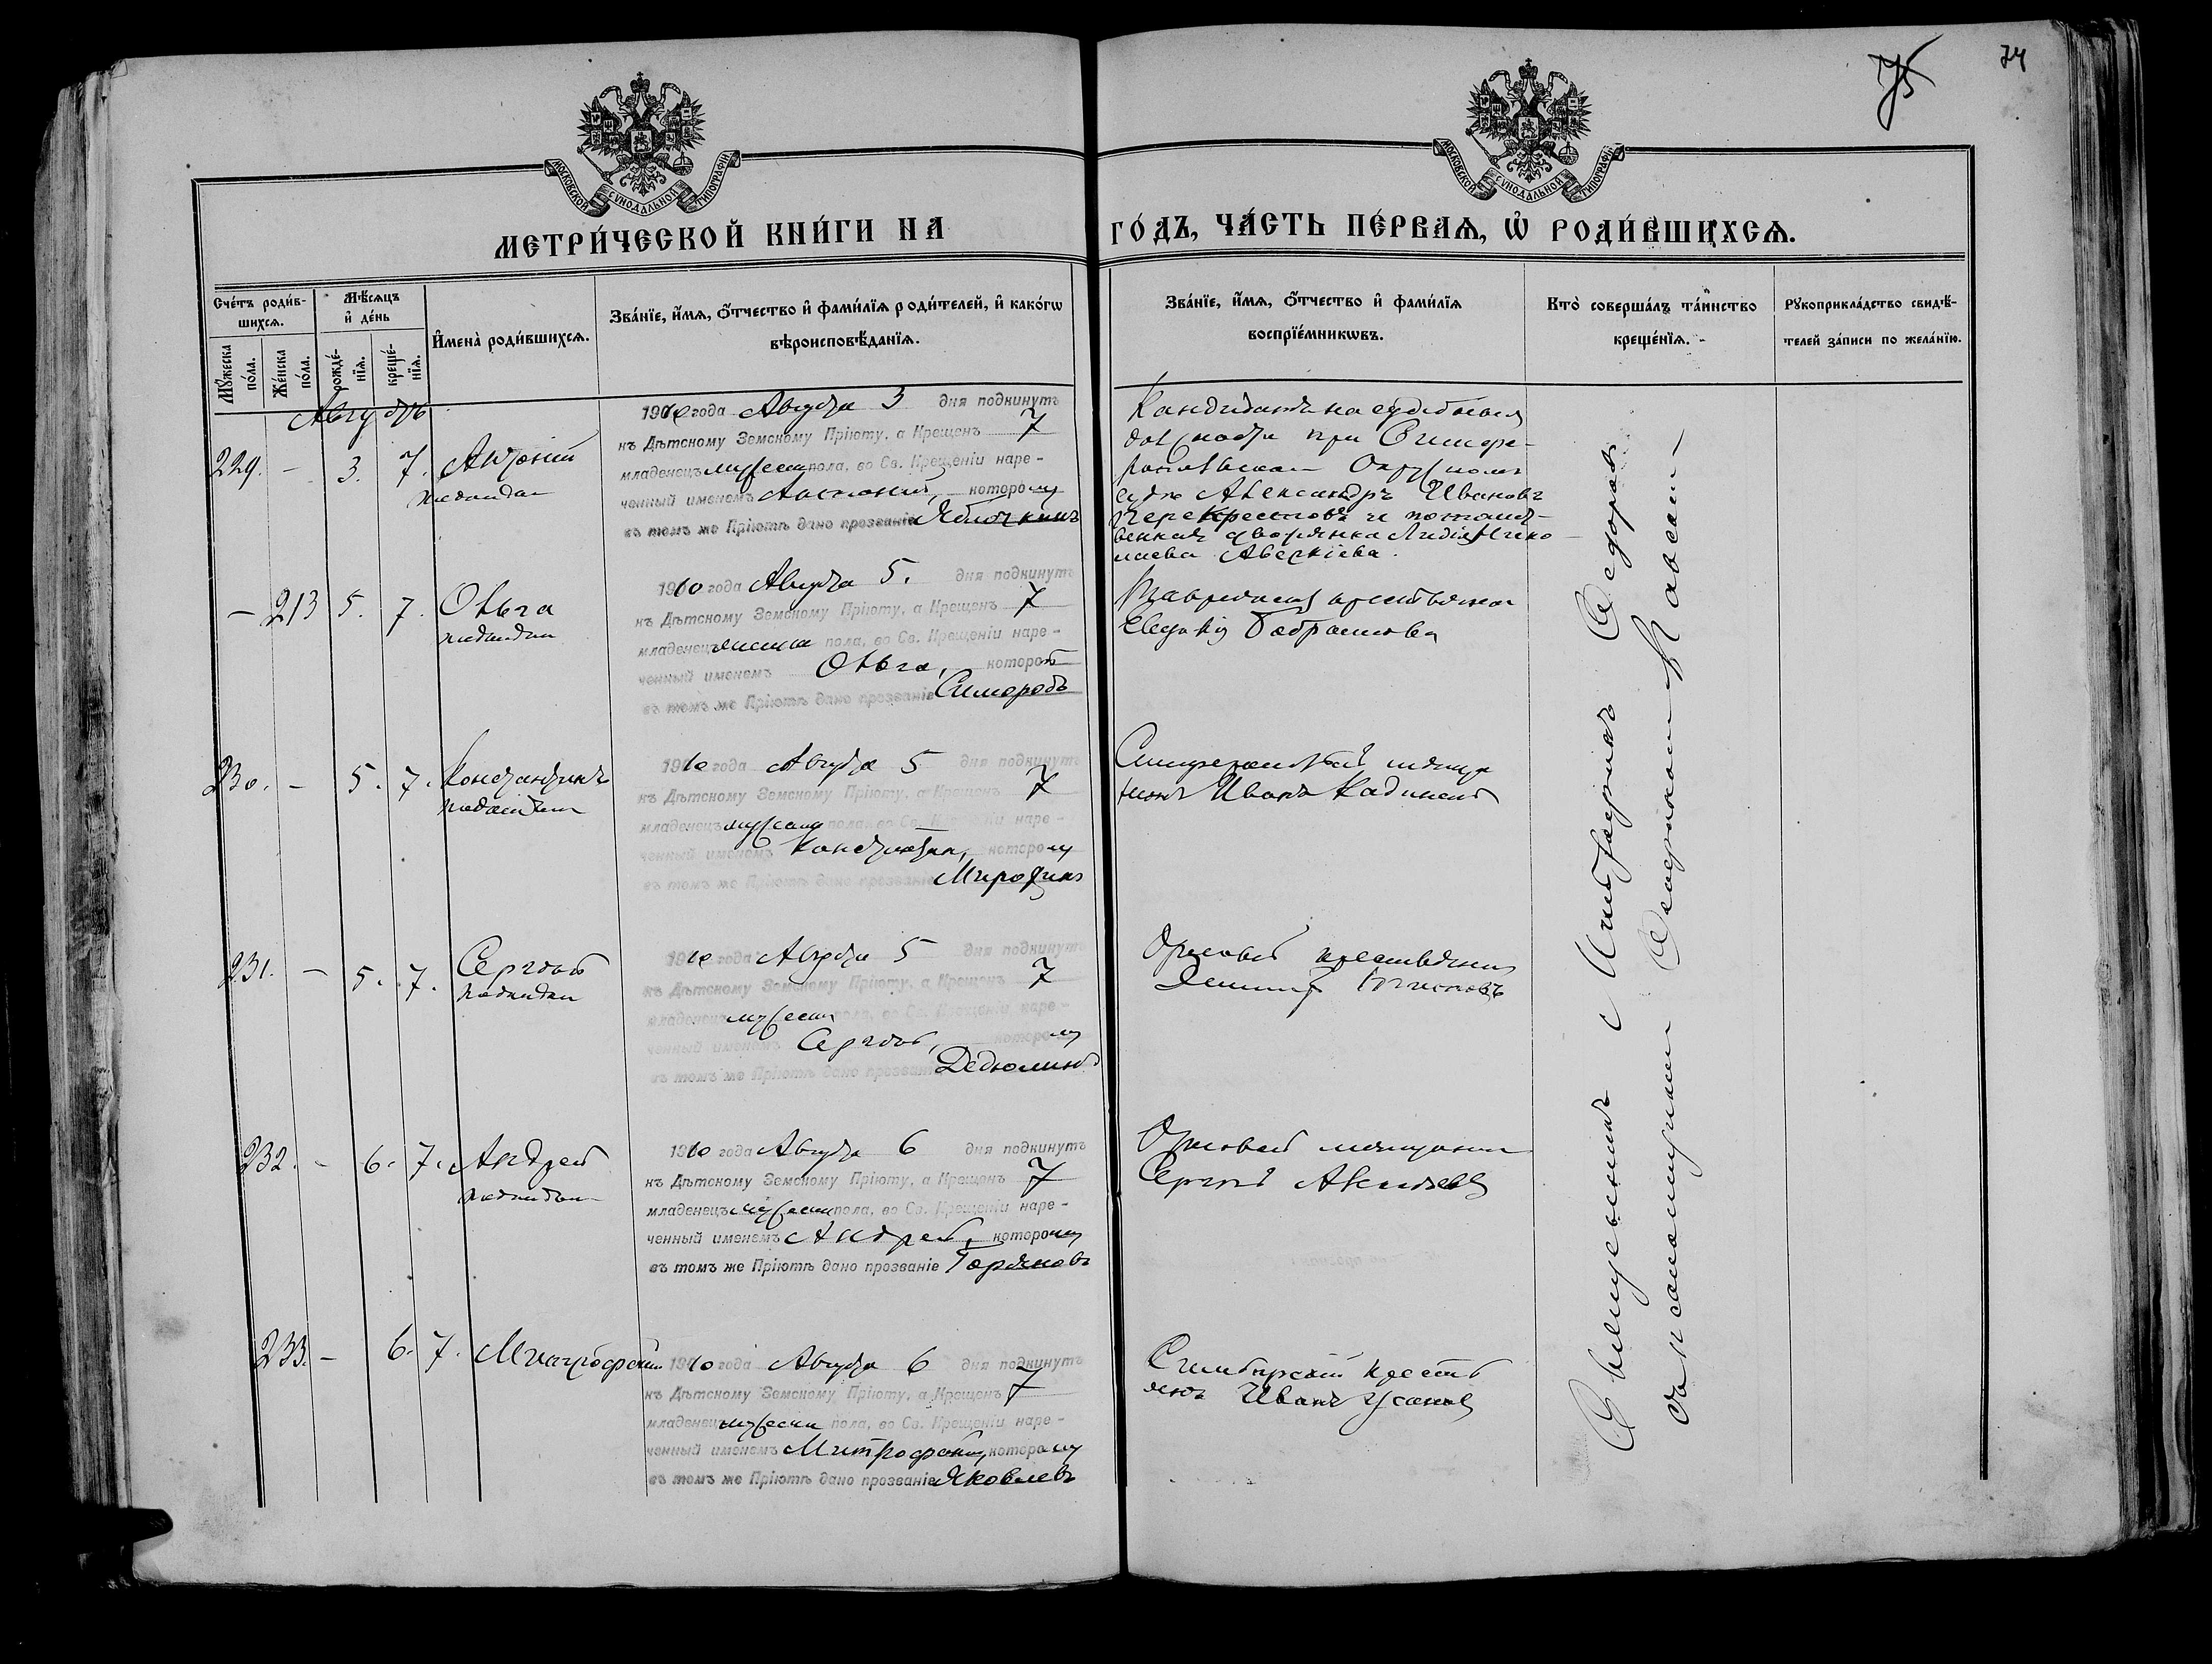 75
74
МОСКОВСКОЙ СѴНОДАЛЬНОЙ ТИПОГРАФІИ
МОСКОВСКОЙ СѴНОДАЛЬНОЙ ТИПОГРАФІИ
МЕТРИ́ЧЕСКОЙ КНИ́ГИ НА
ГО́ДЪ, ЧА́СТЬ ПЕ́РВАѦ, Ѡ҆ РОДИ́ВШИХСѦ.
Сче́тъ роди́в-
шихсѧ.
Мꙋ́жеска по́ла.
Же́нска по́ла.
Мѣ́сѧцъ
и҆ де́нь
рожде́-нїѧ.
креще́-нїѧ.
И҆мена̀ роди́вшихсѧ.
Зва́нїе, и҆́мѧ, ѻ҆́тчество и҆ фами́лїѧ роди́телей, и҆ како́гѡ
вѣроисповѣ́данїѧ.
Зва́нїе, и҆́мѧ, ѻ҆́тчество и҆ фами́лїѧ
воспрїе́мникѡвъ.
Кто̀ соверша́лъ та́инство
креще́нїѧ.
Рꙋкоприкла́дство свидѣ́-
телей за́писи по жела́нїю.
Августъ
229. - 3. 7. Антоній
подкидыш
1910 года Августа 3 дня подкинутъ
къ Дѣтскому Земскому Пріюту, а Крещенъ 7
младенецъ мужеска пола, во Св. Крещеніи наре-
ченный именемъ Антоній, которому
въ томъ же Пріютѣ дано прозваніе Яблочкинъ
Кандидатъ на судебныя
должности при Симфе-
ропольском Окружном
суде Александръ Ивановъ
Перекрестовъ и потомст-
венная дворянка Лидія Нико-
лаева Аверкіева.
- 213 5. 7. Ольга
подкидыш
1910 года Августа 5. дня подкинутъ
къ Дѣтскому Земскому Пріюту, а Крещенъ 7
младенецъ женска пола, во Св. Крещеніи наре-
ченный именемъ Ольга, которой
въ томъ же Пріютѣ дано прозваніе
230. - 5. 7. Константинъ
подкидыш
1910 года Августа 5 дня подкинутъ
къ Дѣтскому Земскому Пріюту, а Крещенъ 7
младенецъ мужеска пола, во Св. Крещеніи наре-
ченный именемъ Константин, которому
въ томъ же Пріютѣ дано прозваніе
Симферопольскій мѣща
нинъ Иванъ
231. - 5. 7. Сергѣй
подкидыш
1910 года Августа 5 дня подкинутъ
къ Дѣтскому Земскому Пріюту, а Крещенъ 7
младенецъ мужеска пола, во Св. Крещеніи наре-
ченный именемъ Сергѣй, которому
въ томъ же Пріютѣ дано прозваніе Дедюлинъ
крестьянин
232. - 6. 7. Андрей
подкидыш
1910 года Августа 6 дня подкинутъ
къ Дѣтскому Земскому Пріюту, а Крещенъ 7
младенецъ мужеска пола, во Св. Крещеніи наре-
ченный именемъ Андрей, которому
въ томъ же Пріютѣ дано прозваніе Горяновъ
мѣщанин
Сергѣй
233. - 6. 7. Митрофанъ
1910 года Августа 6 дня подкинутъ
къ Дѣтскому Земскому Пріюту, а Крещенъ 7
младенецъ мужеска пола, во Св. Крещеніи наре-
ченный именемъ Митрофанъ, которому
въ томъ же Пріютѣ дано прозваніе Яковлевъ
Симбирскій кресть
янинъ Иванъ Усановъ
Священникъ Митрофанъ Федоровъ